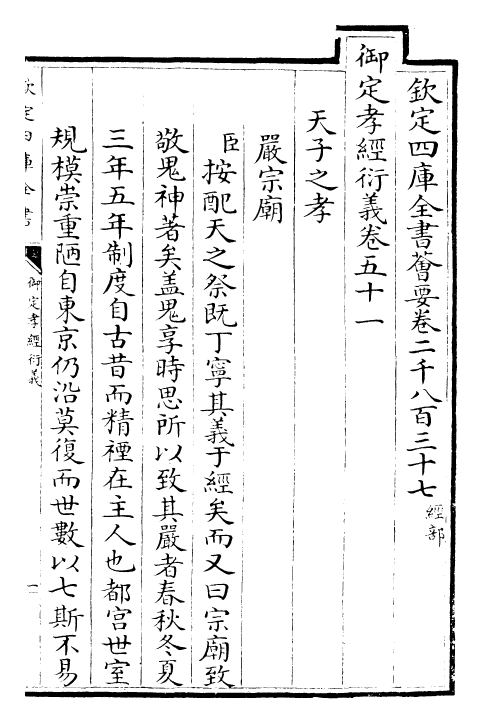 欽定四庫全書薈要卷二千八百三十七 經部
御定孝經衍義卷五十一
天子之孝
嚴宗廟
臣按配天之祭既丁寧其義于經矣而又曰宗廟致
敬鬼神著矣盖鬼享時思所以致其嚴者春秋冬夏
三年五年制度自古昔而精禋在主人也都宫世室
規模崇重陋自東京仍沿莫復而世數以七斯不易
欽定四庫全書
御定孝經衍義
一